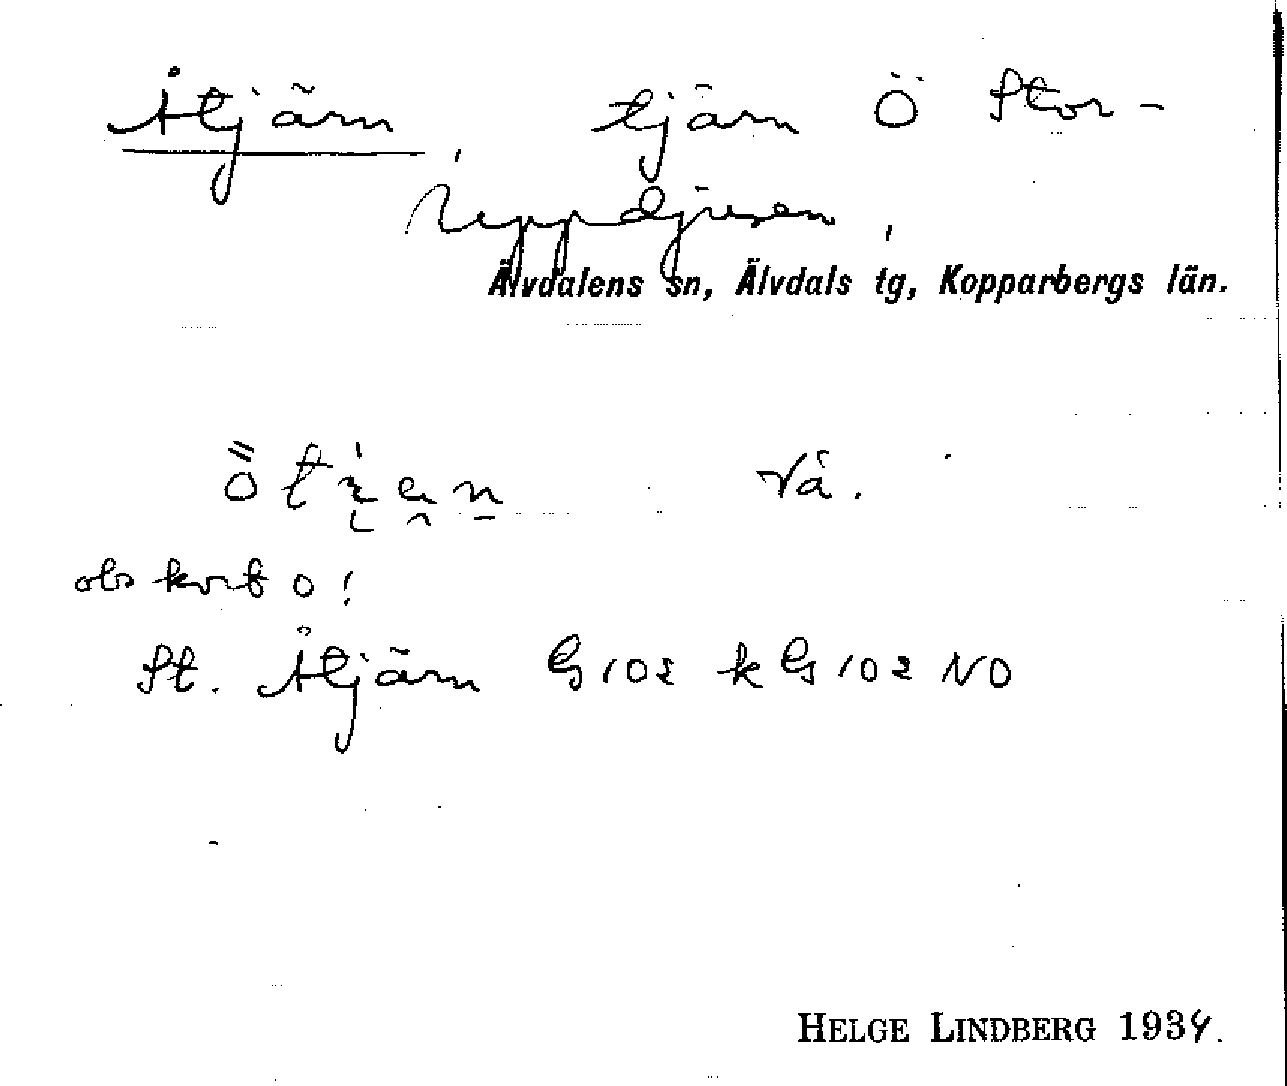 Åtjärn, tjärn Ö Stor-
Uppdjusen,
Älvdalens sn, Älvdals tg, Kopparbergs län.
Vå.
obs kort o!
St. Åtjärn G102 k G102 NO
HELGE LINDBERG 1934.